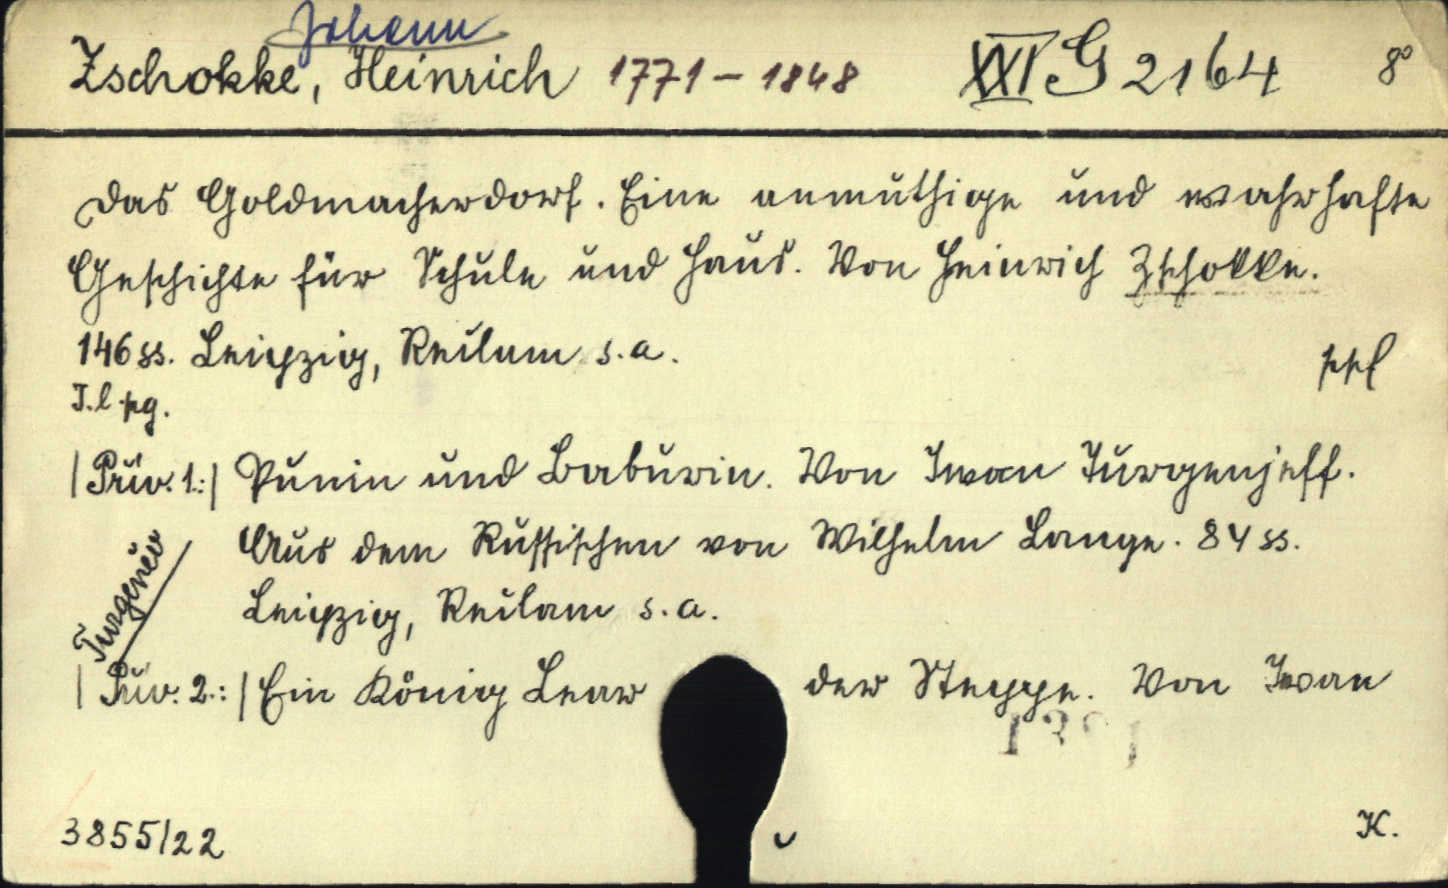 Johann
Zschokke, Heinrich 1771-1848 XXI G 2164 8°
Das Goldmacherdorf. Eine anmuthige und wahrhafte
Geschichte für Schule und Haus. Von Heinrich Zschokke.
146 ss. Leipzig, Reclam s.a.
ppf
T.l. pg.
|Přív. 1.:| Punin und Baburin. Von Iwan Turgenjeff.
Aus dem Russischen von Wilhelm Lange. 84 ss.
Leipzig, Reclam s.a.
Turgeněv
|Přív. 2.:| Ein König Lear der Steppe. Von Iwan
3855/22
K.